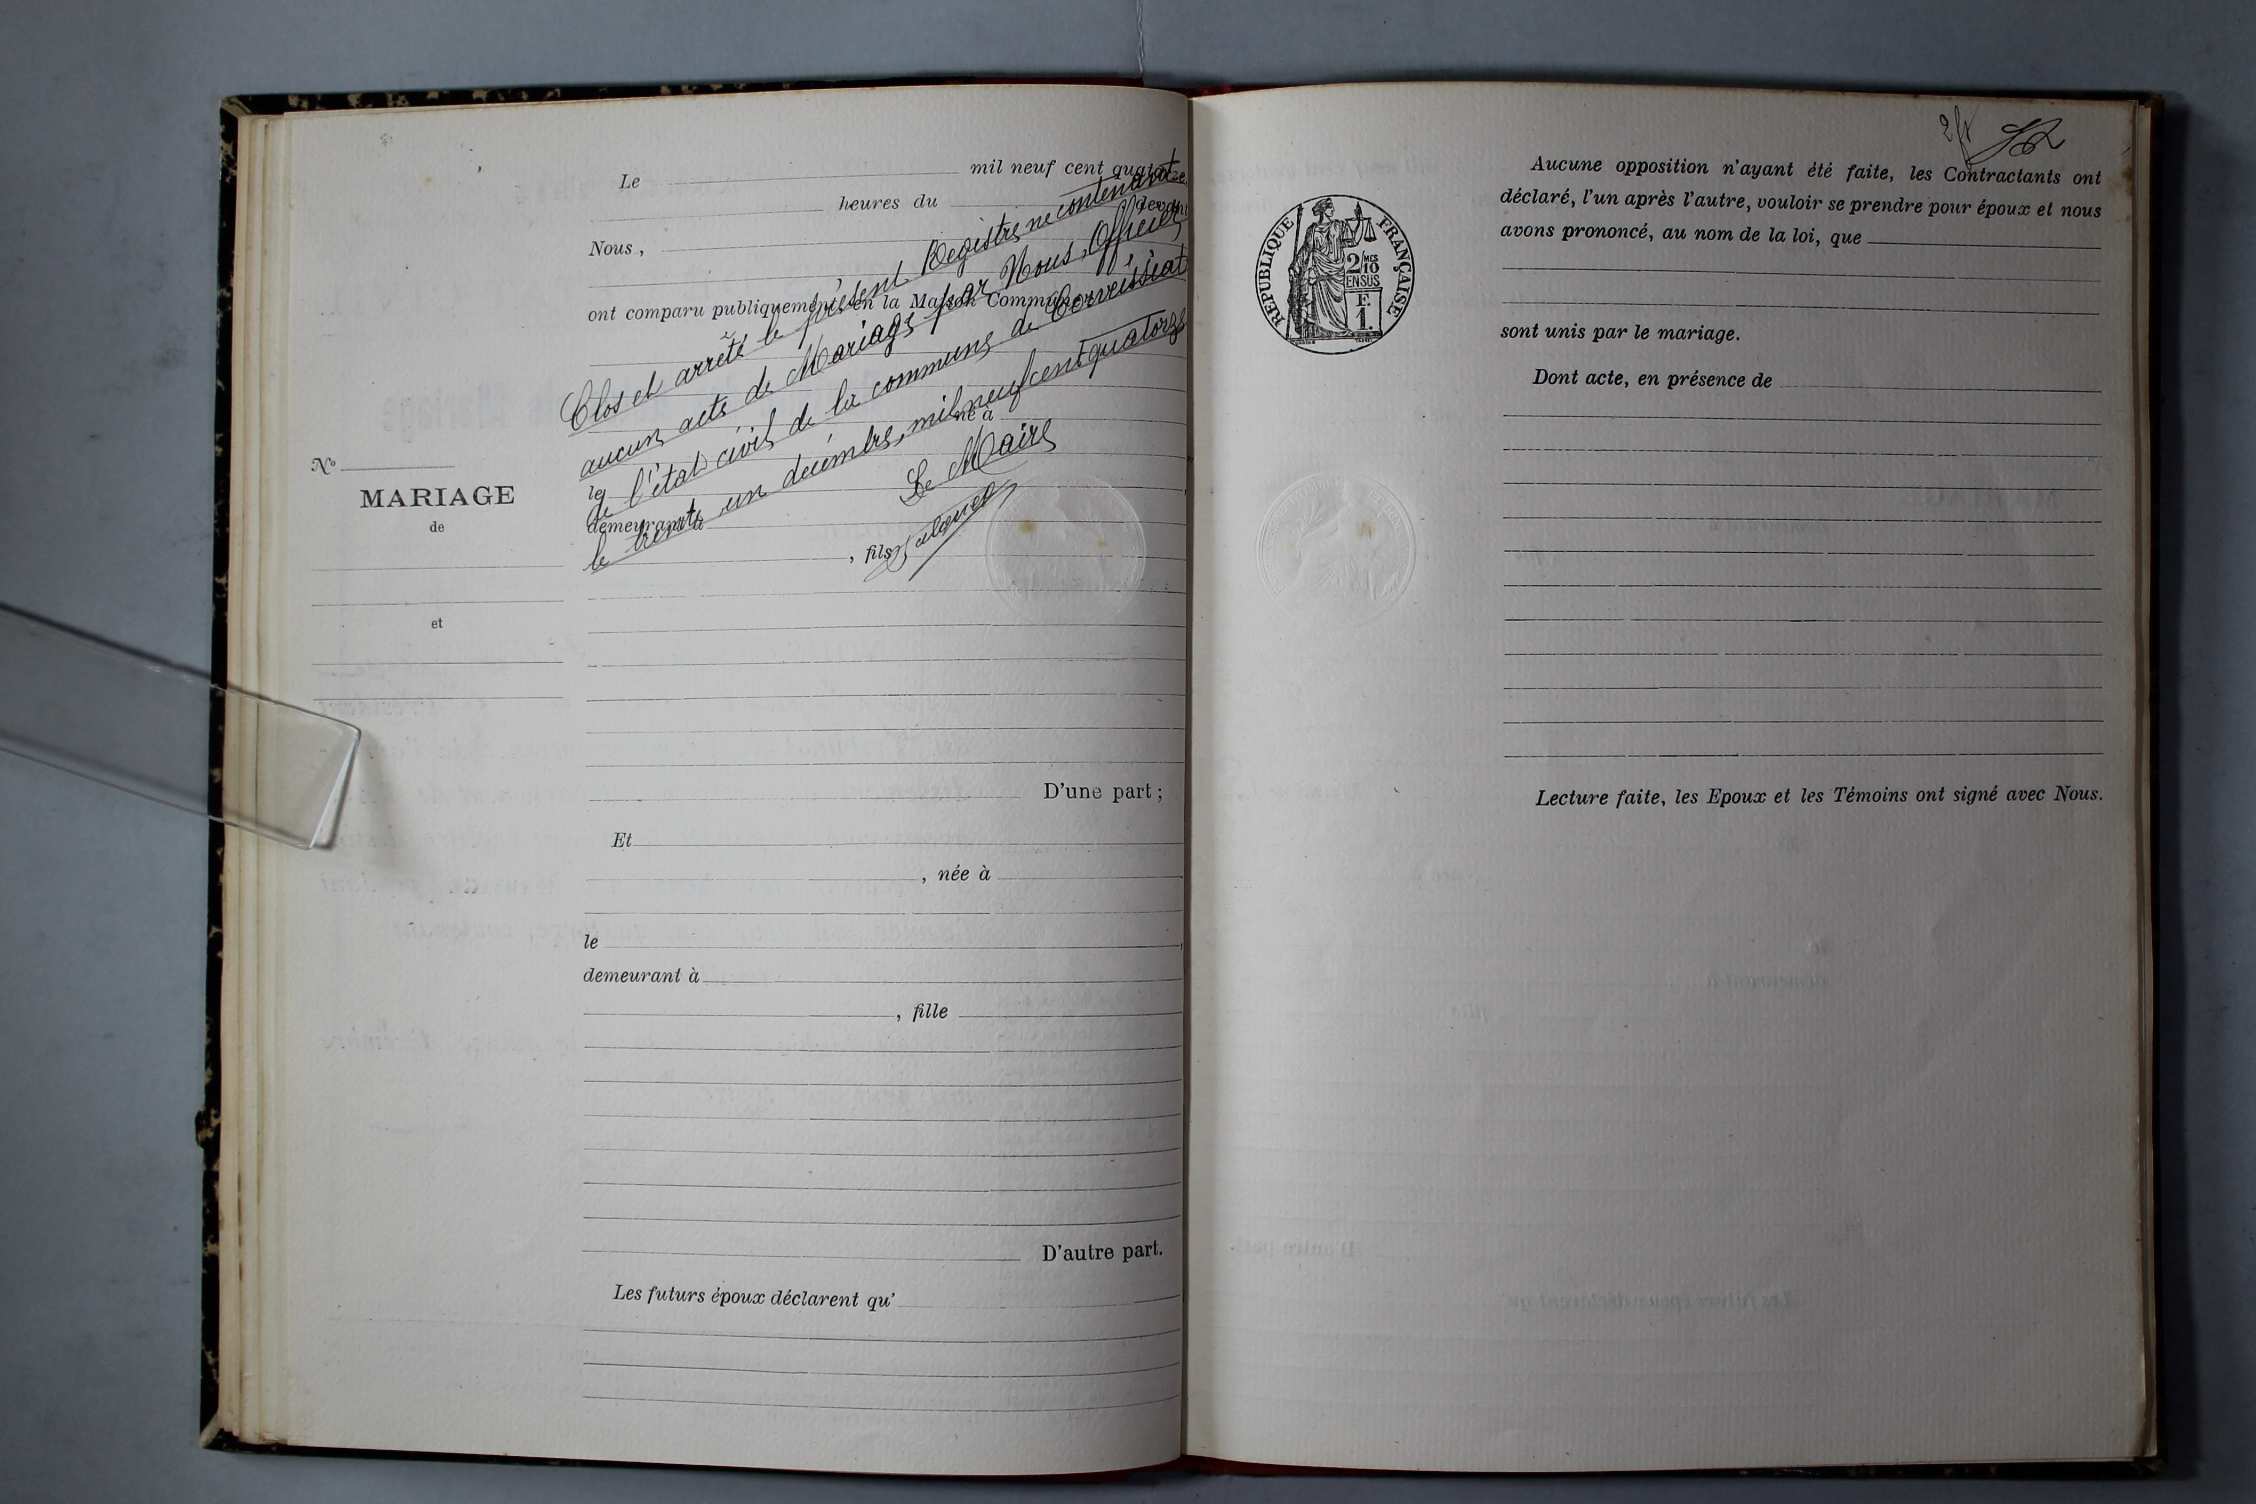 Le mil neuf cent quatorze
heures du devant
Nous,
ont comparu publiquement en la Maison Commune
Clos et arrêté le présent Registre ne contenant
aucun acte de Mariage par Nous, Officier
de l'état civil de la commune de Corveissiat
le trente un décembre, mil neuf cent quatorze
Le Maire
né à
le
demeurant à
, fils
No
MARIAGE
de
et
D'une part ;
Et
, née à
le
demeurant à
, fille
D'autre part.
Les futurs époux déclarent qu'
RÉPUBLIQUE FRANÇAISE
2/10 MES
EN SUS
F.
1.
Aucune opposition n'ayant été faite, les Contractants ont
déclaré, l'un après l'autre, vouloir se prendre pour époux et nous
avons prononcé, au nom de la loi, que
sont unis par le mariage.
Dont acte, en présence de
Lecture faite, les Epoux et les Témoins ont signé avec Nous.